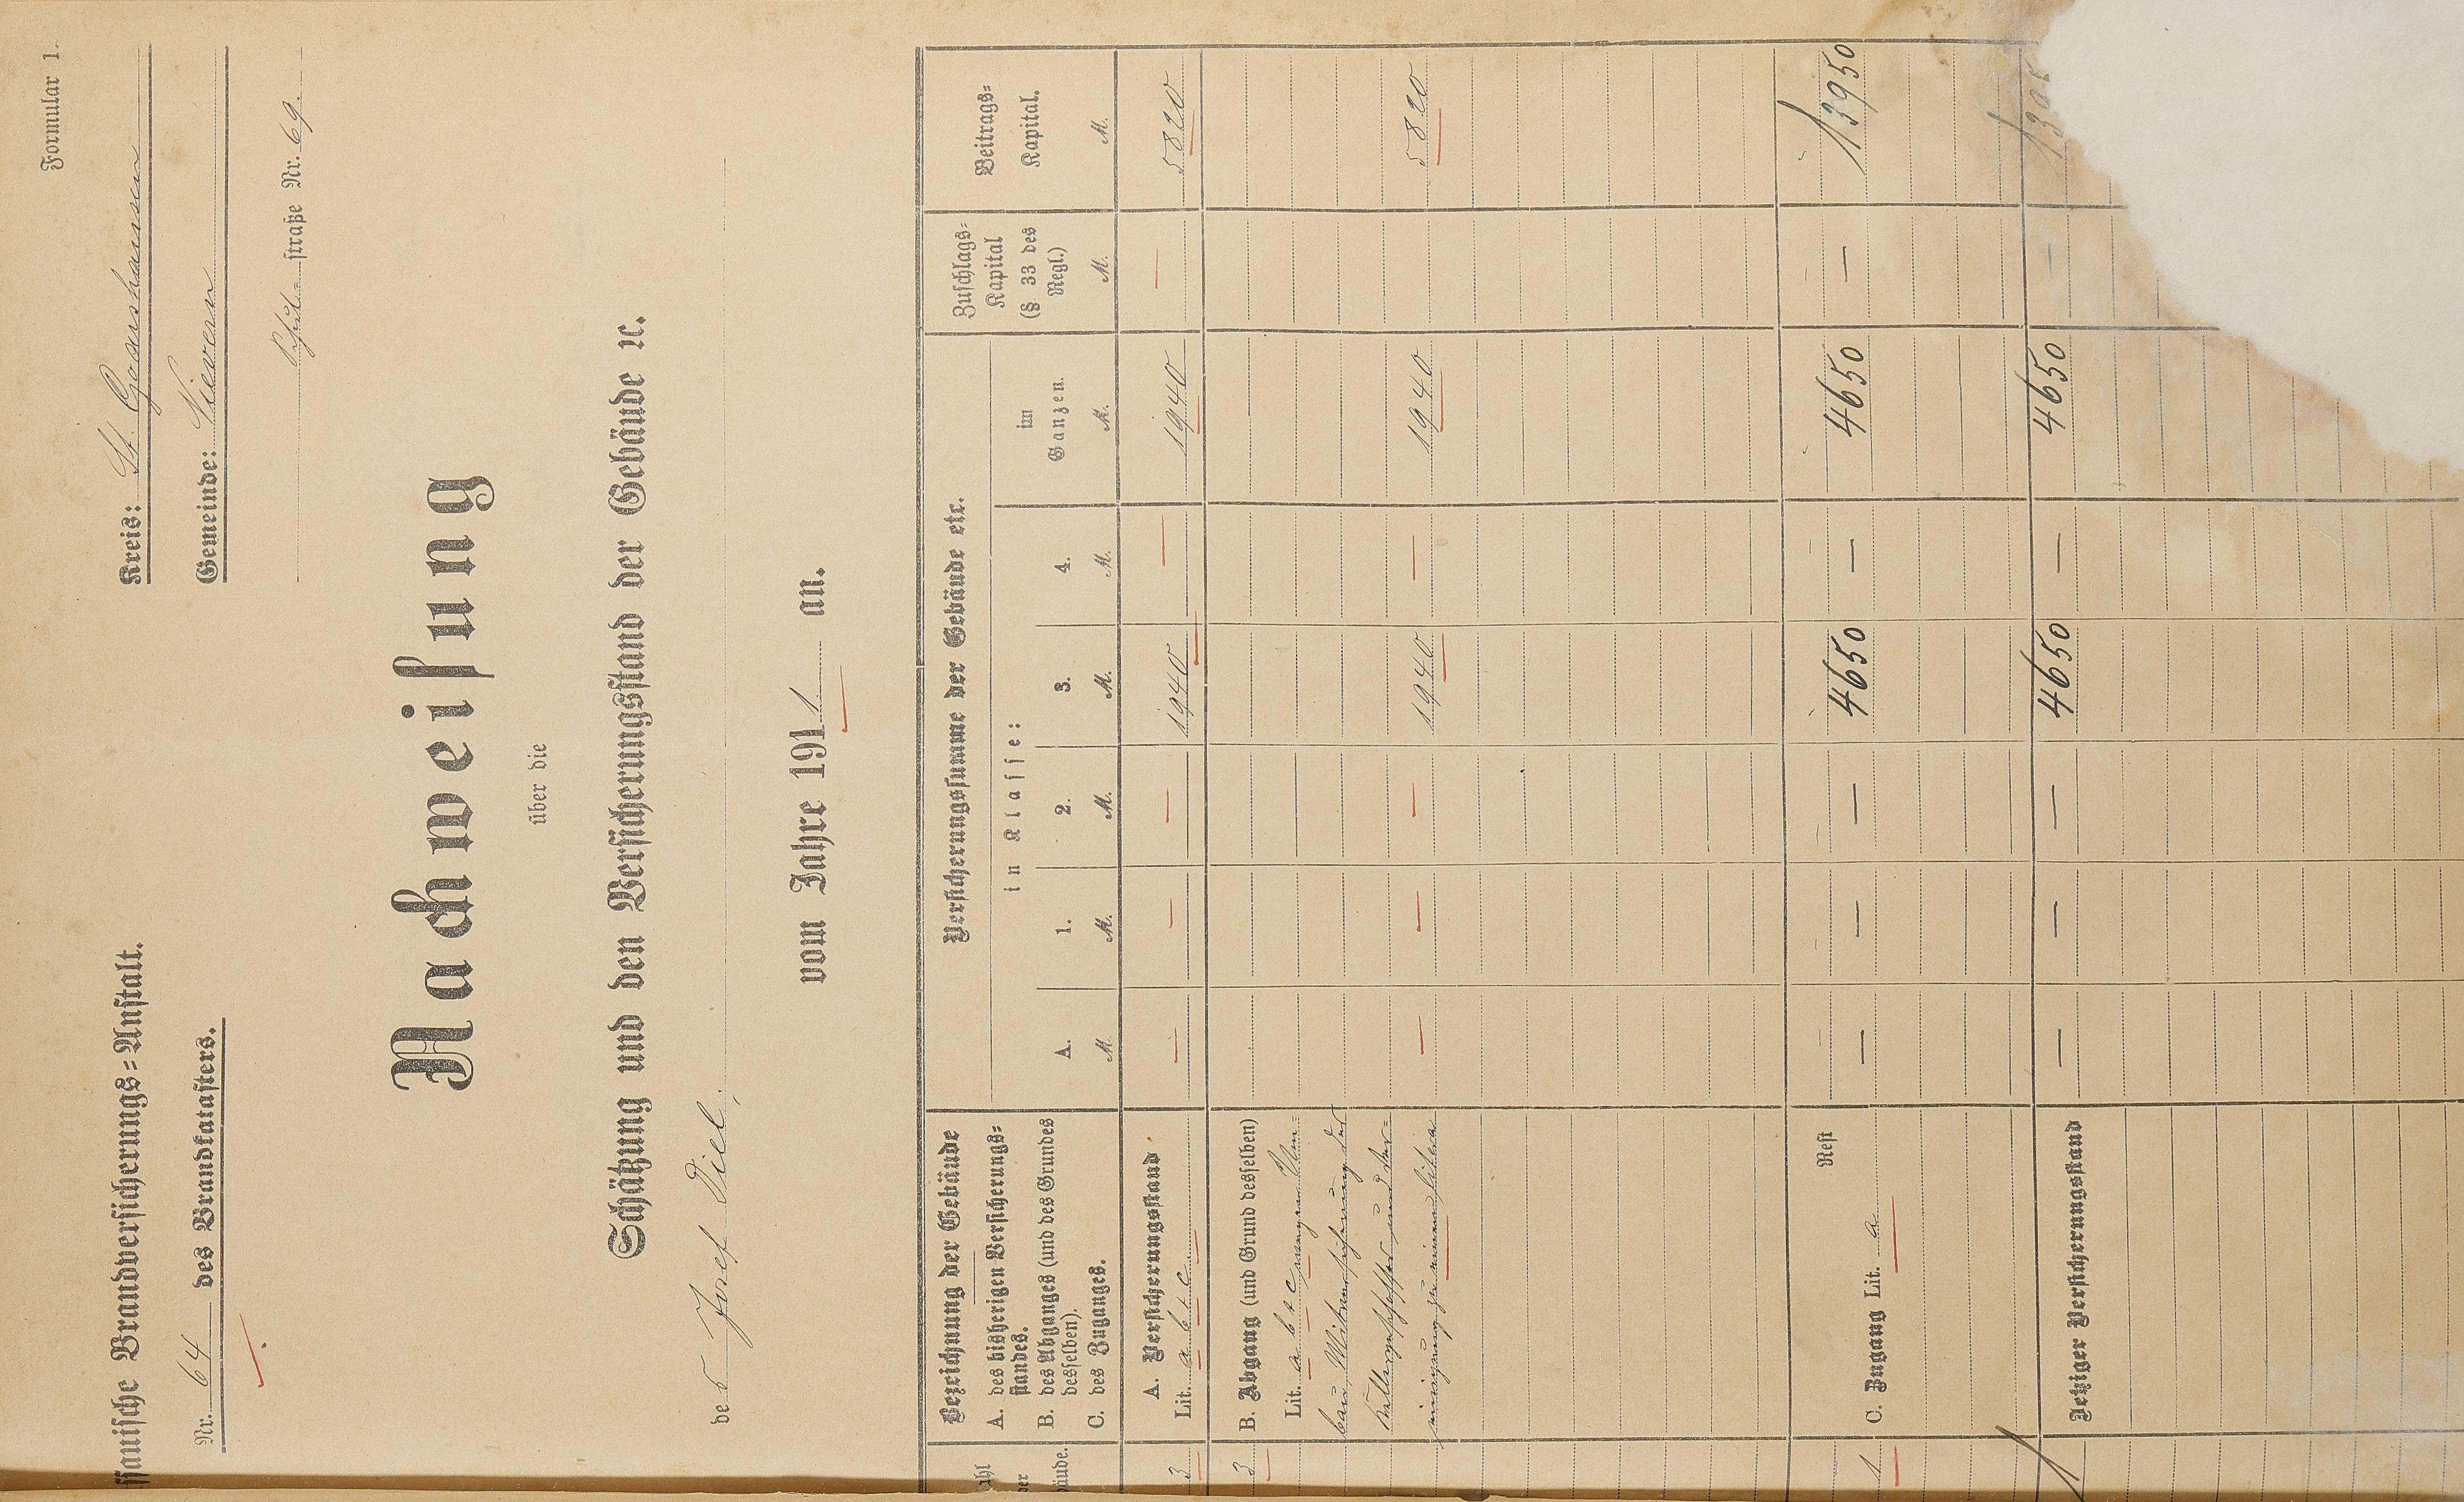 Formular 1.
ssauische Brandversicherungs=Anstalt.
Kreis: St. Goarshausen
Nr. 64 des Brandkatasters.
Gemeinde: Nievern
Schul=straße Nr. 69.
Nachweisung
über die
Schätzung und den Versicherungsstand der Gebäude ꝛc.
des Josef Viel,
vom Jahre 1911 an.
ahl
er
äude.
Bezeichnung der Gebäude
A. des bisherigen Versicherungs=
standes.
B. des Abganges (und des Grundes
desselben).
C. des Zuganges.
Versicherungssumme der Gebäude etc.
in Klasse:
A. M.
1. M.
2. M.
3. M.
4. M.
im
Ganzen.
M.
Zuschlags=
Kapital
(§ 33 des
Regl.)
M.
Beitrags=
Kapital.
M.
A. Versicherungsstand
3 Lit. a b & c — — — 1940 — 1940 — 5820
3 B. Abgang (und Grund desselben)
Lit. a b & c wegen Um=
bau,
und der=
einigung zu einem
— — — 1940 — 1940 5820
Rest — — — — — — — —
1 C. Zugang Lit. a — — — 4650 — 4650 — 13950
1 Jetziger Versicherungsstand — — — 4650 — 4650 — 1395